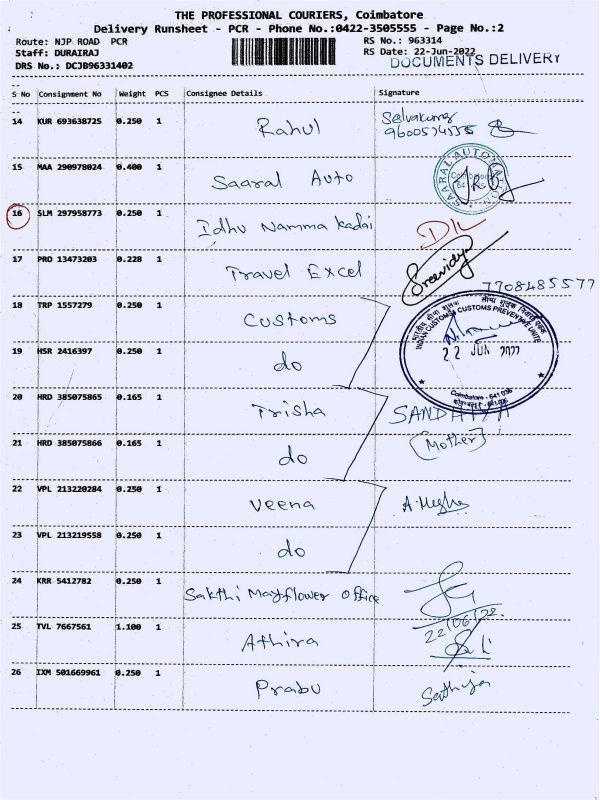 THE PROFESSIONAL COURIERS, Coimbatore
Delivery Runsheet - PCR - Phone No.:0422-3505555 - Page No.:2
Route: NJP ROAD PCR
RS No.: 963314
Staff: DURAIRAJ
RS Date: 22-Jun-2022
DRS No.: DCJB96331402
DOCUMENTS DELIVERY
S No Consignment No Weight PCS Consignee Details Signature
14 KUR 693638725 0.250 1 Rahul Selvakumar
15 MAA 290978024 0.400 1 Saaral Auto SAARAL AUTO
16 SLM 297958773 0.250 1 Idhu Namma Kadai
17 PRO 13473203 0.228 1 Travel Excel Sreevidya
7708485577
18 TRP 1557279 0.250 1 Customs
INDIAN CUSTOMS CUSTOMS PREVENTIVE UNIT
22 JUN 2022
19 HSR 2416397 0.250 1 do
Coimbatore - 641 018
20 HRD 385075865 0.165 1 Trisha SANDHIYA
21 HRD 385075866 0.165 1 do (Mother)
22 VPL 213220284 0.250 1 Veena A. Megha
23 VPL 213219558 0.250 1 do
24 KRR 5412782 0.250 1 Sakthi Mayflower office
22/06/22.
25 TVL 7667561 1.100 1 Athira
26 IXM 501669961 0.250 1 Prabu Sathiya